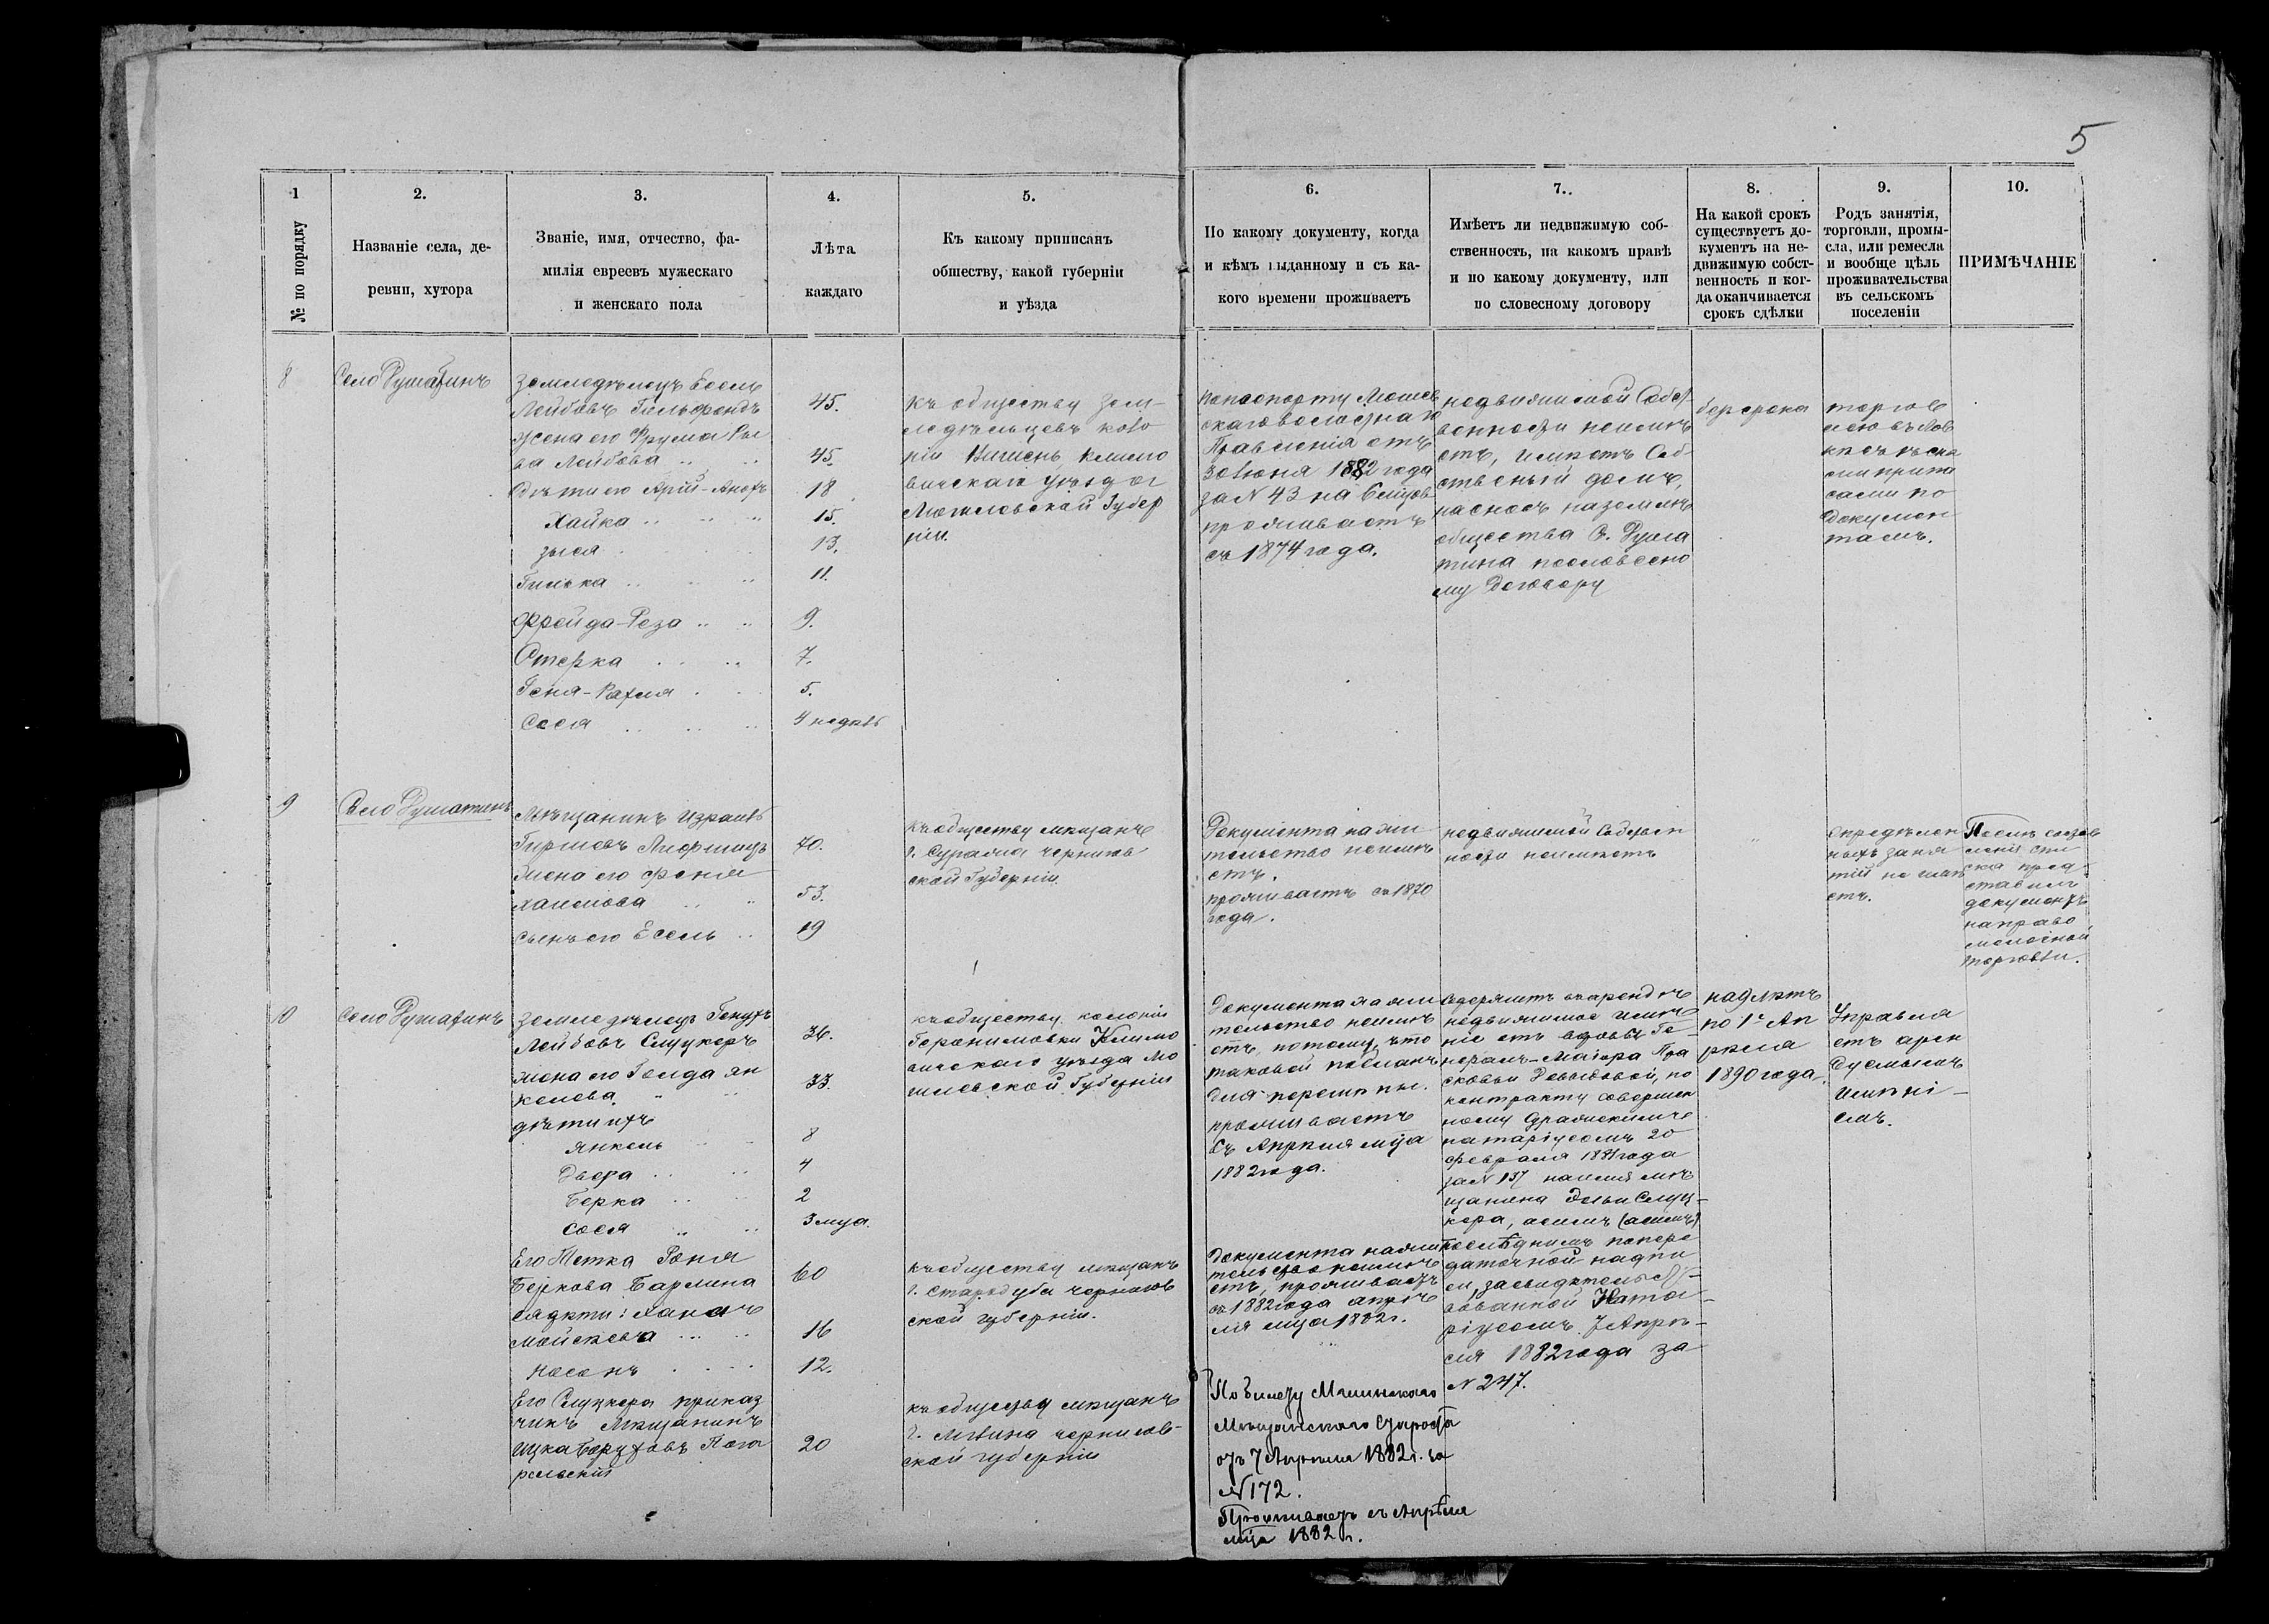 5
1
№ по порядку
2.
Названіе села, де-
ревни, хутора
3.
Званіе, имя, отчество, фа-
милія евреевъ мужескаго
и женскаго пола
4.
Лѣта
каждаго
5.
Къ какому приписанъ
обществу, какой губерніи
и уѣзда
6.
По какому документу, когда
и кѣмъ выданному и съ ка-
кого времени проживаетъ
7.
Имѣетъ ли недвижимую соб-
ственность, на какомъ правѣ
и по какому документу, или
по словесному договору
8.
На какой срокъ
существуетъ до-
кументъ на не-
движимую собст-
венность и ког-
да оканчивается
срокъ сдѣлки
9.
Родъ занятія,
торговли, промы-
сла, или ремесла
и вообще цѣль
проживательства
въ сельскомъ
поселеніи
10.
ПРИМѢЧАНІЕ
8
Село Думатинъ
Земледѣлецъ Есель
Лейбовъ Гильфондъ
45.
жена его Фрума Ры
ва Лейбова
45.
Дѣти его
18
Хайка
15.
Зыся
13.
Гилька
11.
Фрейда-Реза
9.
Стерка
7.
Геня-Рахля
5.
Сося
недѣль
Къ обществу зем-
ледѣльцевъ коло
ніи
вичскаго уѣзда
Могилевской Губер
ніи.
По паспорту
скаго волостнаго
Правленія отъ
30 Іюня 1882 года
за N 43 на
проживаетъ
съ 1874 года.
недвижимой Собст
венности неимѣ
етъ, имѣетъ Соб
ственный домъ,
на землѣ
общества С. Дума
тина по словесно
му Договору
безсрочно
торгов
лею
припа
сами по
докумен
тамъ.
9
Село Думатинъ
Мѣщанинъ Израиль
Гиршовъ Лифшицъ
70.
Жена его Феня
Хаимова
53.
Сынъ его Есель
19
Къ обществу мѣщанъ
г. Суража Чернигов
ской Губерніи.
Документа на жи
тельство неимѣ
етъ.
проживаетъ съ 1870
года.
недвижимой Собствен
ности неимѣетъ
"
Опредѣлен
ныхъ заня
тій не имѣ
етъ.
Послѣ состав
ленія спи
ска пред
ставилъ
документъ
на право
мелочной
торговли.
10
Село Думатинъ
Земледѣлецъ Генухъ
Лейбовъ Слуцкеръ
36.
жена его Голда Ян
келева
33.
дѣти ихъ
Янкель
8
Двера
4
Берка
2
Сося
3 мца.
Его Тетка Роня
Беркова Бармина
60
ея дѣти: Ханачъ
Мойсеева
16
Носонъ
12.
Его Слуцкера приказ
чикъ Мѣщанинъ
Ицка Боруховъ Пога
рельскій
20
къ обществу колоніи
Геронимовки Климо
вичскаго уѣзда Мо
гилевской Губерніи
къ обществу мѣщанъ
г. Стародуба чернигов
ской губерніи.
къ обществу мѣщанъ
г. Мглина чернигов-
ской губерніи
Документа на жи
тельство неимѣ
етъ, потому, что
таковой посланъ
для перемѣны.
проживаетъ
съ Апрѣля мца
1882 года.
Документа на жи
тельство неимѣ
етъ, проживаетъ
съ 1882 года апрѣ
ля мца 1882 г.
По билету Мглинскаго
Мѣщанскаго Старосты
отъ 7 Апрѣля 1882 г. за
N 172.
Проживаетъ съ Апрѣля
мца 1882 г.
Содержитъ въ арендѣ
недвижимое имѣ
ніе отъ вдовы Ге-
нералъ-Маіора Пра
сковьи Давыдовой, по
контракту совершен
ному
нотаріусомъ 20
февраля 1881 года
за N 137 на имя мѣ
щанина Слуц-
кера, а
послѣднимъ по пере
даточной надпи
си, засвидѣтельст-
вованной Нота-
ріусомъ 7 Апрѣ-
ля 1882 года за
N 247.
на 9 лѣтъ
по 1е Ап
рѣля
1890 года.
Управля
етъ арен
дуемымъ
имѣні-
емъ.